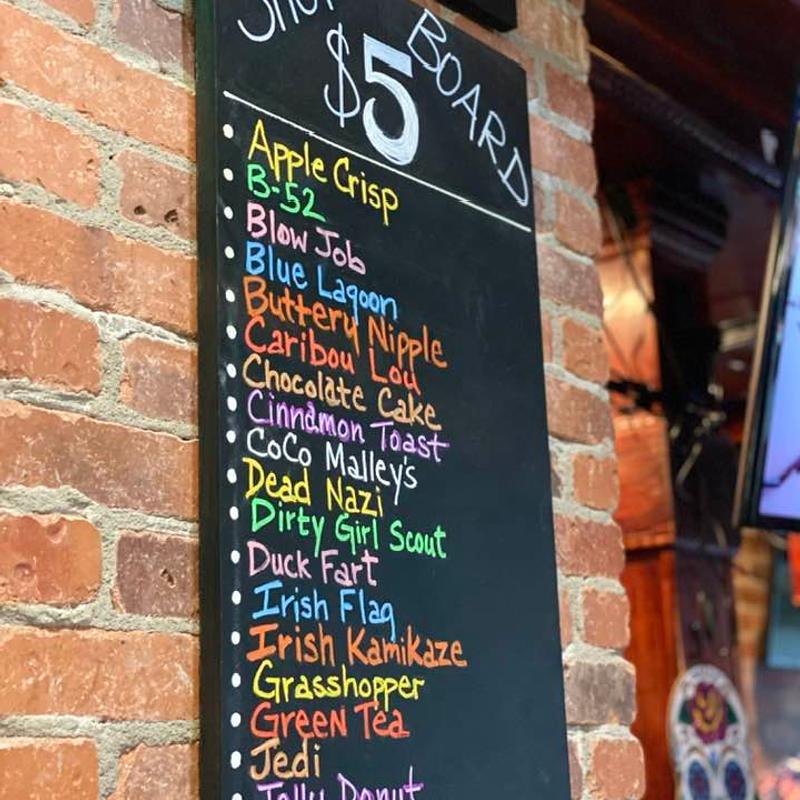 SHOT BOARD
$5
Apple Crisp
B-52
Blow Job
Blue Lagoon
Buttery Nipple
Caribou Lou
Chocolate Cake
Cinnamon Toast
CoCo Malley's
Dead Nazi
Dirty Girl Scout
Duck Fart
Irish Flag
Irish Kamikaze
Grasshopper
Green Tea
Jedi
Jelly Donut